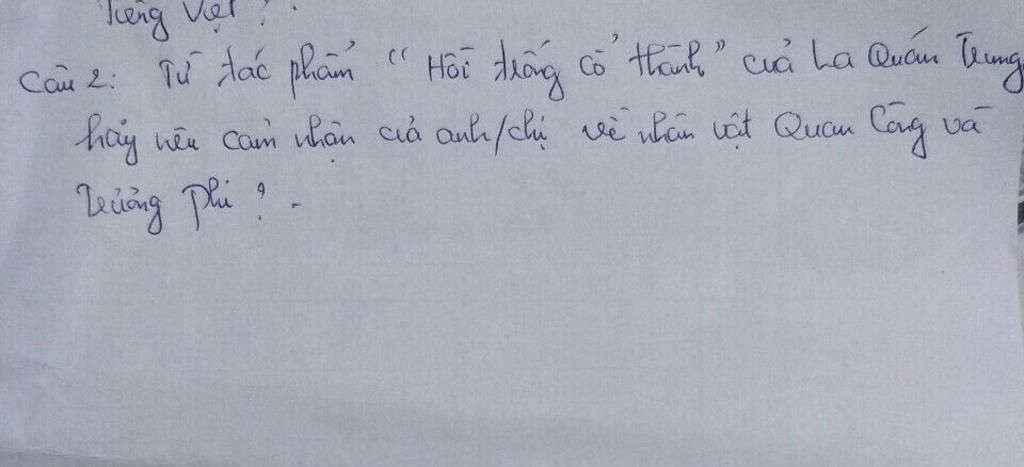 Tiếng Việt ?.
Câu 2: Từ tác phẩm "Hồi trống Cổ thành" của La Quán Trung
hãy nêu cảm nhận của anh/chị về nhân vật Quan Công và
Trương Phi ? .